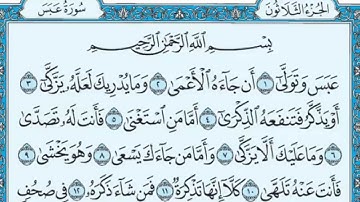 الجزء الثلاثون
سورة عبس
بِسْمِ اللَّهِ الرَّحْمَٰنِ الرَّحِيمِ
عَبَسَ وَتَوَلَّىٰ ۝١ أَن جَاءَهُ الْأَعْمَىٰ ۝٢ وَمَا يُدْرِيكَ لَعَلَّهُ يَزَّكَّىٰ ۝٣
أَوْ يَذَّكَّرُ فَتَنفَعَهُ الذِّكْرَىٰ ۝٤ أَمَّا مَنِ اسْتَغْنَىٰ ۝٥ فَأَنتَ لَهُ تَصَدَّىٰ
۝٦ وَمَا عَلَيْكَ أَلَّا يَزَّكَّىٰ ۝٧ وَأَمَّا مَن جَاءَكَ يَسْعَىٰ ۝٨ وَهُوَ يَخْشَىٰ ۝٩
فَأَنتَ عَنْهُ تَلَهَّىٰ ۝١٠ كَلَّا إِنَّهَا تَذْكِرَةٌ ۝١١ فَمَن شَاءَ ذَكَرَهُ ۝١٢ فِي صُحُفٍ